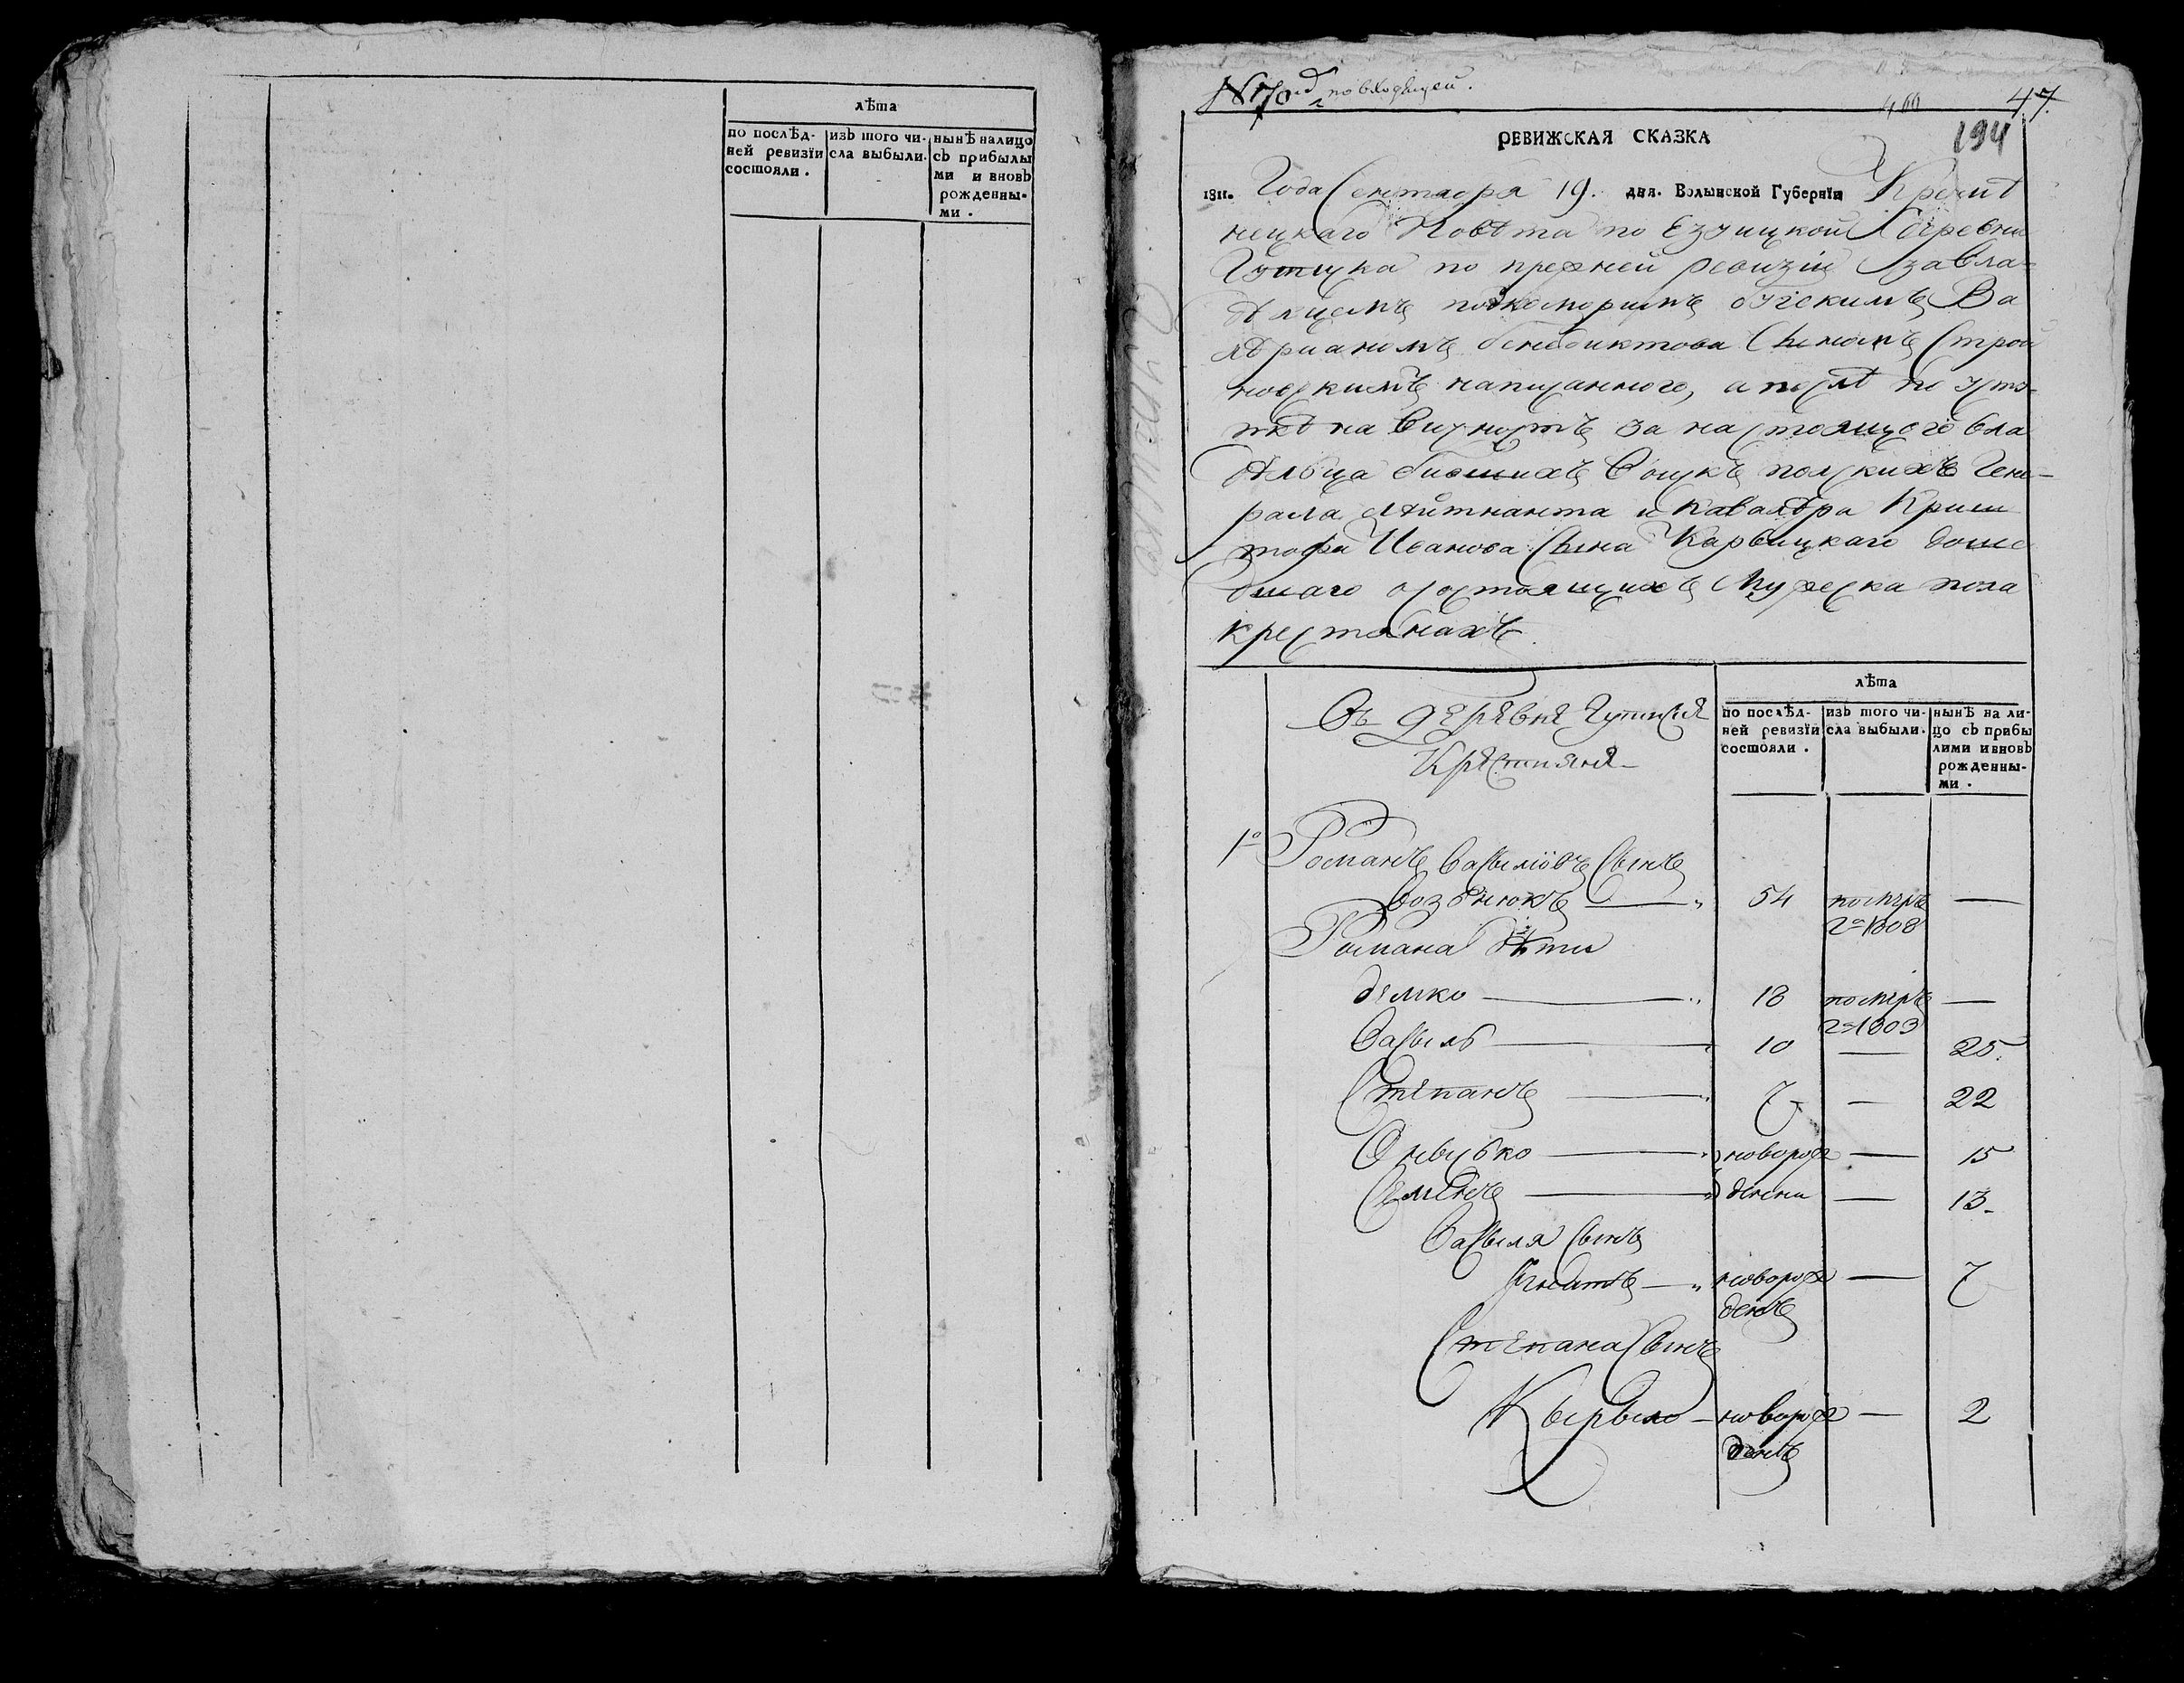 лѣта
по послѣд-
ней ревизїи
состояли.
изъ того чи-
сла выбыли.
нынѣ на лицо
съ прибылы
ми и вновь
рожденны-
ми.
№ 70 по входящей.
47.
194
РЕВИЖСКАЯ СКАЗКА
1811. Года Сентября 19. дня. Волынской Губернїи Кремѣ
нецкаго Повѣта по Езуицкой деревни
по прежней ревизїи за вла-
дѣлцемъ подкоморимъ Ва
лѣрианомъ бенедиктова Сыномъ Строй
новскимъ написанного, а послѣ по усту-
пкѣ на вичность за настоящого вла
дѣльца бившихъ Войскъ полскихъ Гене-
рала лѣйтнанта и Кавалѣра Криш
тофа Иванова Сына Карвицкаго доше
дшаго о состоящихъ Мужеска пола
крестянахъ.
лѣта
по послѣд-
ней ревизїи
состояли.
изъ того чи-
сла выбыли.
нынѣ на ли-
цо съ прибы
лими и вновь
рожденны-
ми.
Въ деревнѣ
Крестияне
1º Романъ Васылiовъ Сынъ
Возьнюкъ — 54 померъ —
1808
Романа дѣти
демко — 18 померъ —
1803
Василь — 10 — 25.
Степанъ — 7 — 22
— новорож — 15
Семенъ — дении — 13.
Васыля Сынъ
Игнатъ — новорож — 7
денъ
Степана Сынъ
Кырыло — новорож — 2
денъ